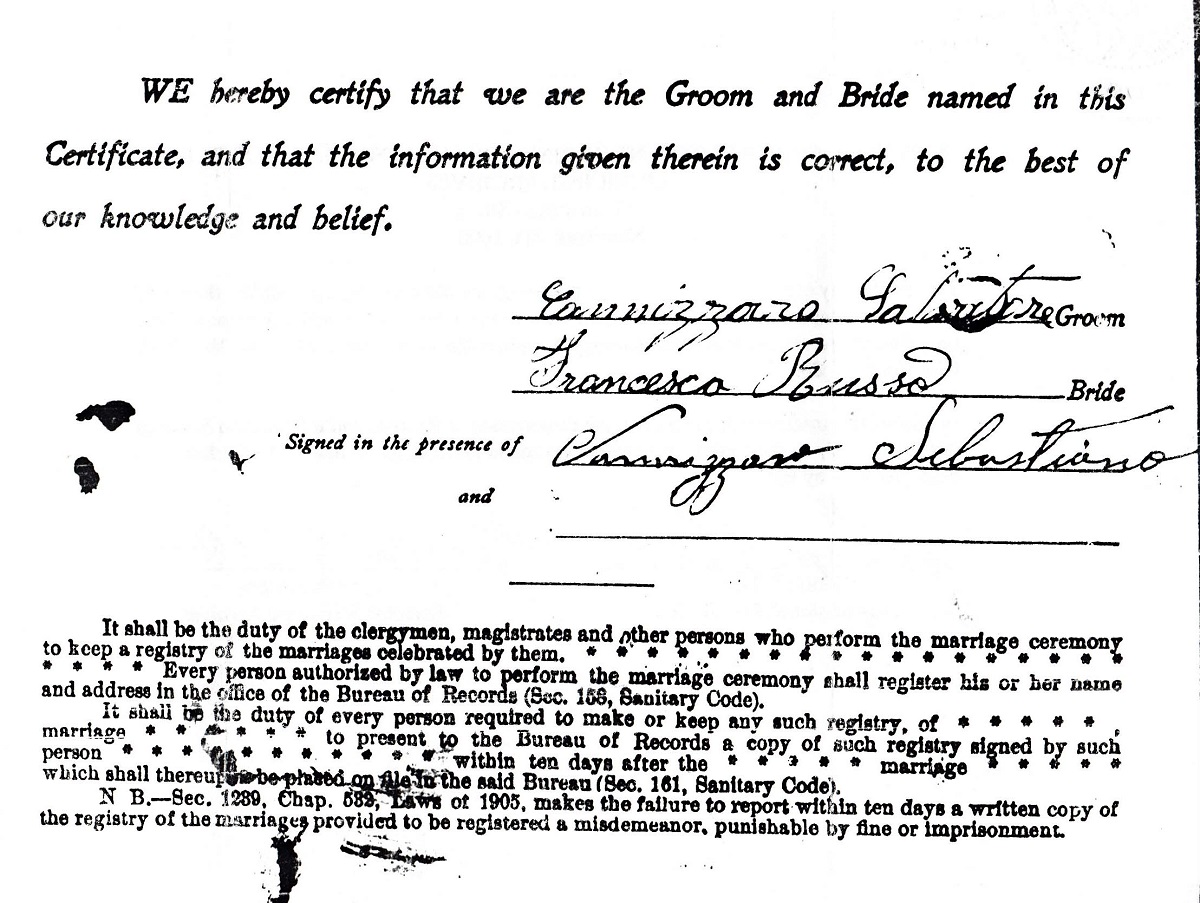 WE hereby certify that we are the Groom and Bride named in this
Certificate, and that the information given therein is correct, to the best of
our knowledge and belief.
Cannizzaro Salvatore Groom
Francesca Russo Bride
Signed in the presence of Cannizzaro Sebastiano
and
It shall be the duty of the clergymen, magistrates and other persons who perform the marriage ceremony
to keep a registry of the marriages celebrated by them. * * * * * * * * * * * * * * * * *
* * * * Every person authorized by law to perform the marriage ceremony shall register his or her name
and address in the office of the Bureau of Records (Sec. 156, Sanitary Code).
It shall be the duty of every person required to make or keep any such registry, of * * * * *
marriage * * * * * * to present to the Bureau of Records a copy of such registry signed by such
person * * * * * * * * * * * * * within ten days after the * * * * * marriage * * * * *
which shall thereupon be placed on file in the said Bureau (Sec. 161, Sanitary Code).
N B.—Sec. 1239, Chap. 632, Laws of 1905, makes the failure to report within ten days a written copy of
the registry of the marriages provided to be registered a misdemeanor, punishable by fine or imprisonment.